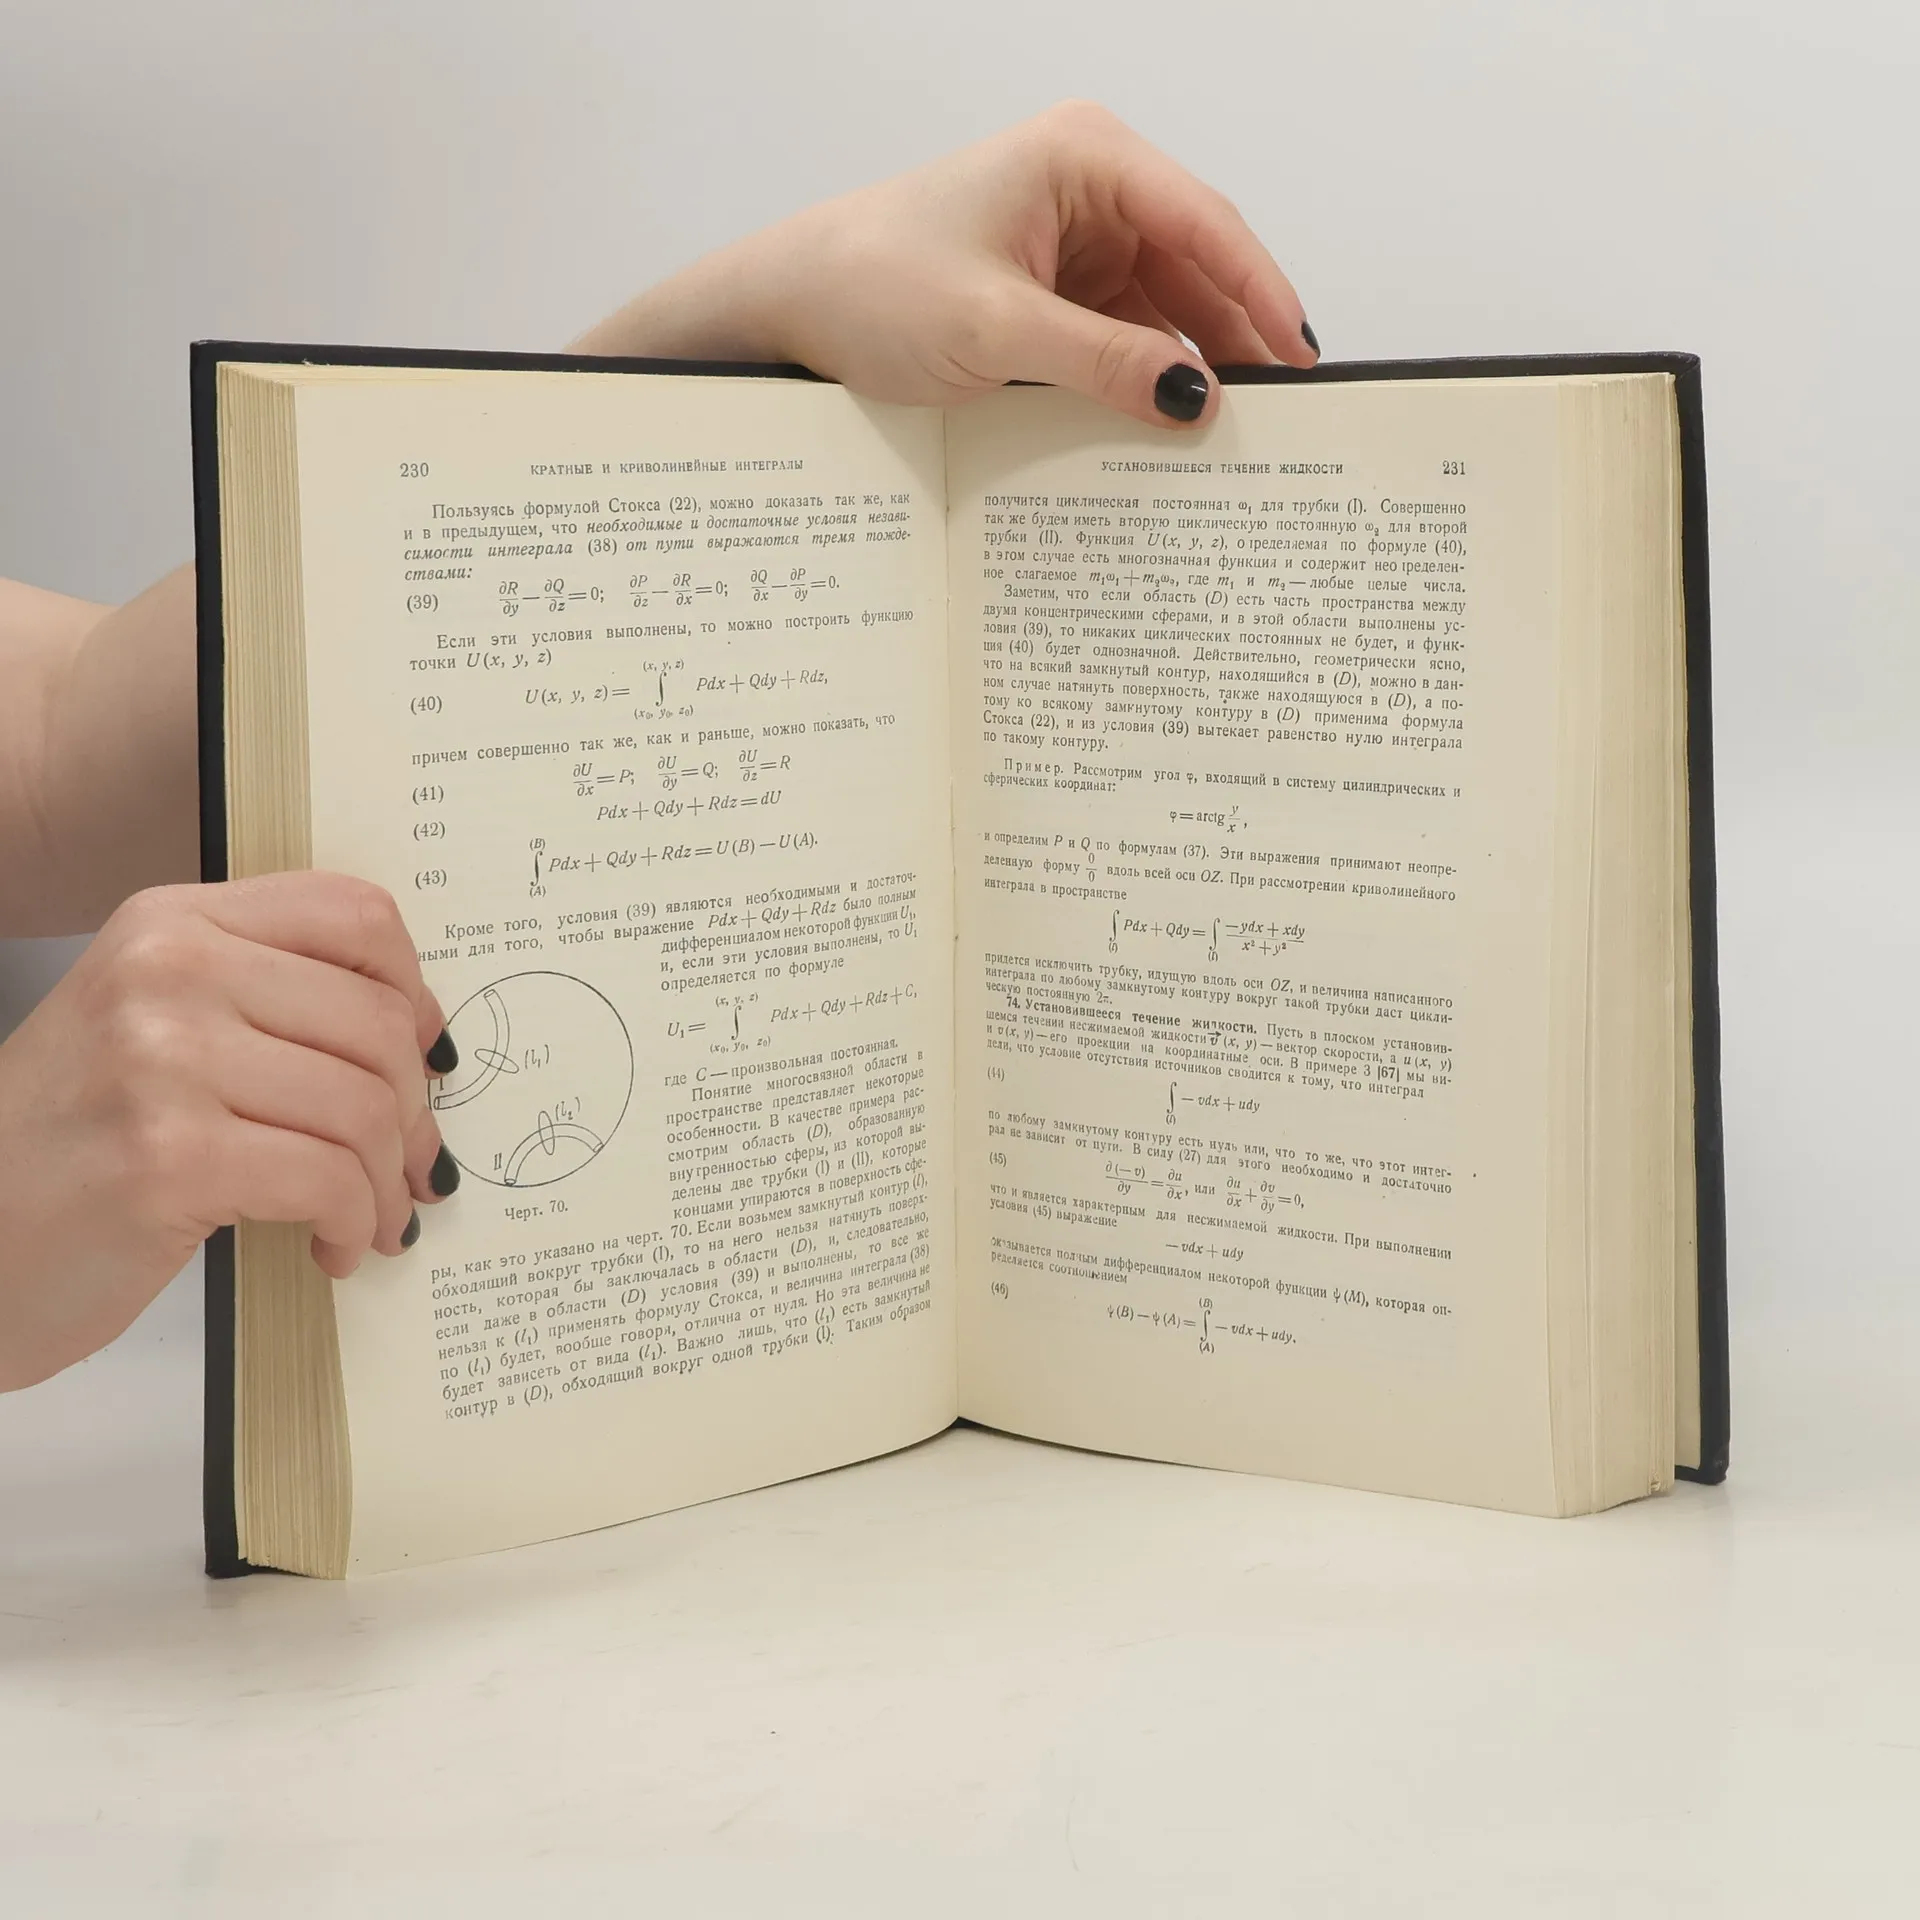 230 КРАТНЫЕ И КРИВОЛИНЕЙНЫЕ ИНТЕГРАЛЫ
Пользуясь формулой Стокса (22), можно доказать так же, как
и в предыдущем, что необходимые и достаточные условия незави-
симости интеграла (38) от пути выражаются тремя тожде-
ствами:
(39) ∂R/∂y — ∂Q/∂z = 0; ∂P/∂z — ∂R/∂x = 0; ∂Q/∂x — ∂P/∂y = 0.
Если эти условия выполнены, то можно построить функцию
точки U (x, y, z)
(x, y, z)
(40) U (x, y, z) = ∫ Pdx + Qdy + Rdz,
(x₀, y₀, z₀)
причем совершенно так же, как и раньше, можно показать, что
(41) ∂U/∂x = P; ∂U/∂y = Q; ∂U/∂z = R
(42) Pdx + Qdy + Rdz = dU
(B)
(43) ∫ Pdx + Qdy + Rdz = U (B) — U (A).
(A)
Кроме того, условия (39) являются необходимыми и достаточ-
ными для того, чтобы выражение Pdx + Qdy + Rdz было полным
дифференциалом некоторой функции U₁,
и, если эти условия выполнены, то U₁
определяется по формуле
(x, y, z)
U₁ = ∫ Pdx + Qdy + Rdz + C,
(x₀, y₀, z₀)
где C — произвольная постоянная.
Понятие многосвязной области в
пространстве представляет некоторые
особенности. В качестве примера рас-
смотрим область (D), образованную
внутренностью сферы, из которой вы-
делены две трубки (I) и (II), которые
концами упираются в поверхность сфе-
I
(l₁)
(l₂)
II
Черт. 70.
ры, как это указано на черт. 70. Если возьмем замкнутый контур (l),
обходящий вокруг трубки (I), то на него нельзя натянуть поверх-
ность, которая бы заключалась в области (D), и, следовательно,
если даже в области (D) условия (39) и выполнены, то все же
нельзя к (l₁) применять формулу Стокса, и величина интеграла (38)
по (l₁) будет, вообще говоря, отлична от нуля. Но эта величина не
будет зависеть от вида (l₁). Важно лишь, что (l₁) есть замкнутый
контур в (D), обходящий вокруг одной трубки (I). Таким образом
УСТАНОВИВШЕЕСЯ ТЕЧЕНИЕ ЖИДКОСТИ 231
получится циклическая постоянная ω₁ для трубки (I). Совершенно
так же будем иметь вторую циклическую постоянную ω₂ для второй
трубки (II). Функция U (x, y, z), определяемая по формуле (40),
в этом случае есть многозначная функция и содержит неопределен-
ное слагаемое m₁ω₁ + m₂ω₂, где m₁ и m₂ — любые целые числа.
Заметим, что если область (D) есть часть пространства между
двумя концентрическими сферами, и в этой области выполнены ус-
ловия (39), то никаких циклических постоянных не будет, и функ-
ция (40) будет однозначной. Действительно, геометрически ясно,
что на всякий замкнутый контур, находящийся в (D), можно в дан-
ном случае натянуть поверхность, также находящуюся в (D), а по-
тому ко всякому замкнутому контуру в (D) применима формула
Стокса (22), и из условия (39) вытекает равенство нулю интеграла
по такому контуру.
Пример. Рассмотрим угол φ, входящий в систему цилиндрических и
сферических координат:
φ = arctg y/x,
и определим P и Q по формулам (37). Эти выражения принимают неопре-
деленную форму 0/0 вдоль всей оси OZ. При рассмотрении криволинейного
интеграла в пространстве
∫ Pdx + Qdy = ∫ (—ydx + xdy)/(x² + y²)
(l) (l)
придется исключить трубку, идущую вдоль оси OZ, и величина написанного
интеграла по любому замкнутому контуру вокруг такой трубки даст цикли-
ческую постоянную 2π.
74. Установившееся течение жидкости. Пусть в плоском установив-
шемся течении несжимаемой жидкости v⃗ (x, y) — вектор скорости, а u (x, y)
и v (x, y) — его проекции на координатные оси. В примере 3 [67] мы ви-
дели, что условие отсутствия источников сводится к тому, что интеграл
(44) ∫ — vdx + udy
(l)
по любому замкнутому контуру есть нуль или, что то же, что этот интег-
рал не зависит от пути. В силу (27) для этого необходимо и достаточно
(45) ∂(—v)/∂y = ∂u/∂x, или ∂u/∂x + ∂v/∂y = 0,
что и является характерным для несжимаемой жидкости. При выполнении
условия (45) выражение
— vdx + udy
оказывается полным дифференциалом некоторой функции ψ (M), которая оп-
ределяется соотношением
(B)
(46) ψ (B) — ψ (A) = ∫ — vdx + udy.
(A)